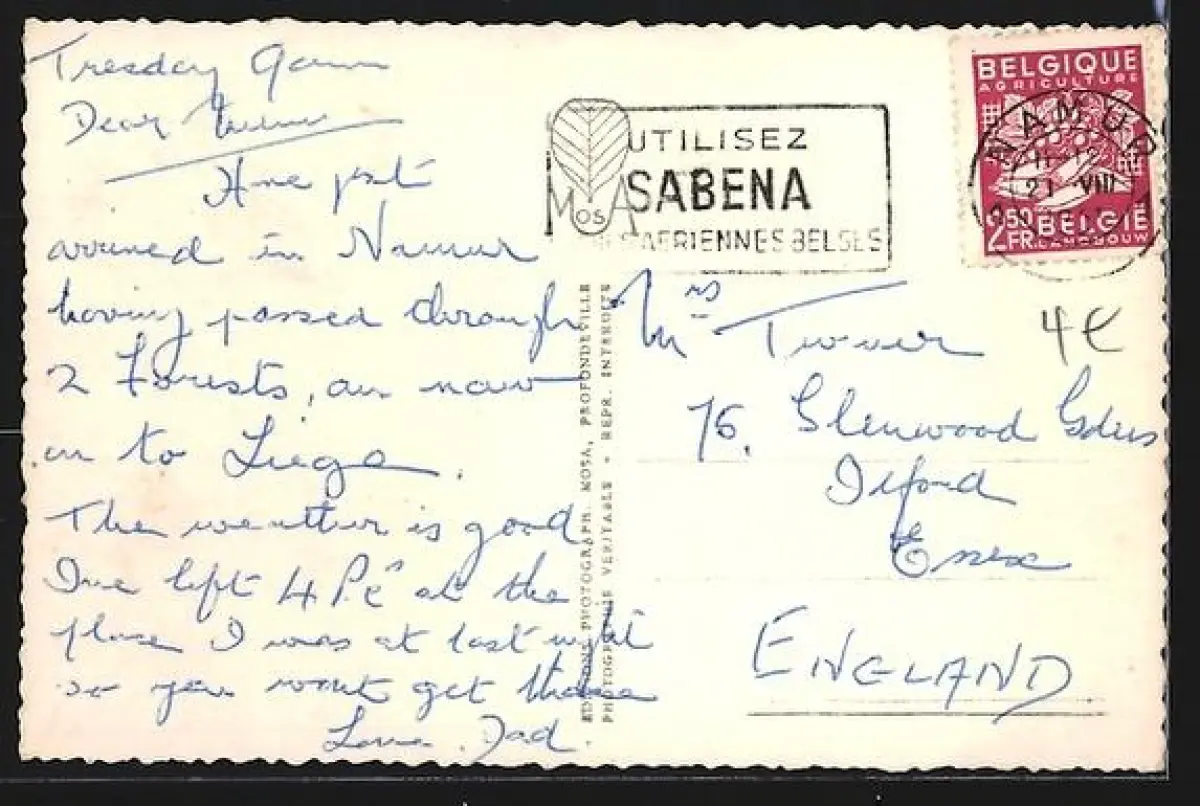 Tuesday 9am
Dear Mum
Have just
arrived in Namur
having passed through
2 Forests, am now
on to Liege.
The weather is good
Ive left 4 P.Cs at the
place I was at last night
so you wont get those
Love. Dad.
UTILISEZ
SABENA
AERIENNES BELGES
BELGIQUE
AGRICULTURE
NAMUR
VIII
2.50
FR.
BELGIË
LANDBOUW
PHOTOGRAPH. KOSA, PROFONDEVILLE
VERITABLE - REPR. INTERDITE
Mrs Turner
76. Glenwood Gdns
Ilford
Essex
ENGLAND
4€